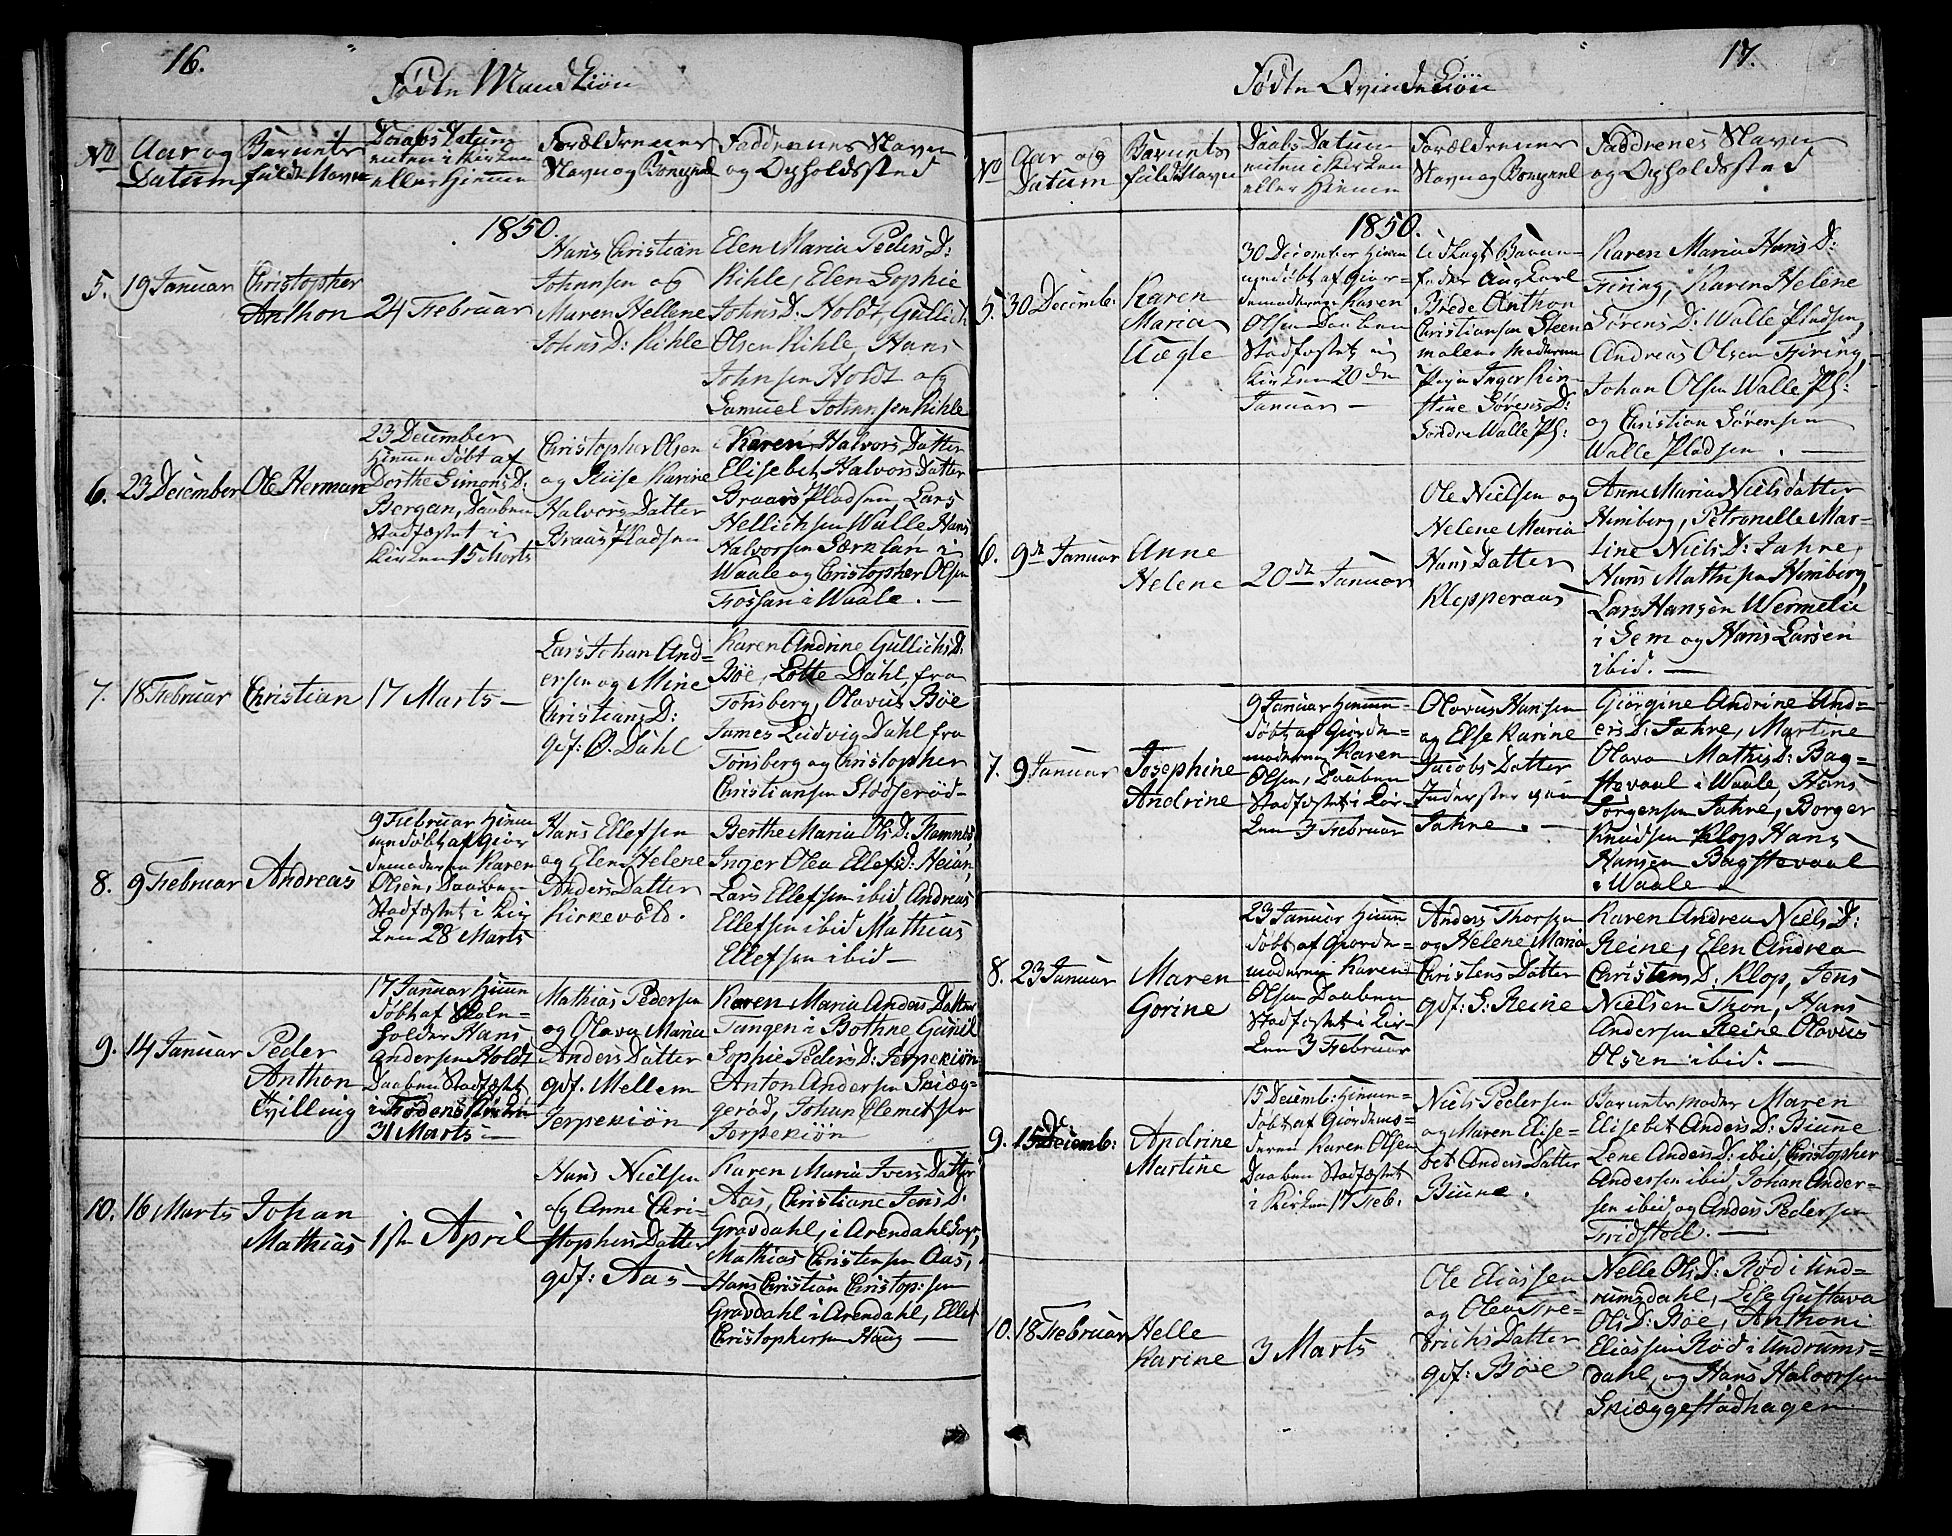 16.
Fødte Mandkiön
No
Aar og
Datum
Barnets
fulde Navn
Daabs Datum
enten i Kirken
eller Hiemme
Forældrenes
Navn og Bopæl
Faddrenes Navn
og Opholdssted
1850.
5.
19 Januar
Christopher
Anthon
24 Februar
Hans Christian
Johnsen og
Maren Hellene
Johns D: Kihle
Elen Maria Peders D:
Kihle, Elen Sophie
Johns D: Holdt, Gullich
Olsen Kihle, Hans
Johnsen Holdt og
Samuel Johansen Kihle
6.
23 December
Ole Herman
23 December
Hiemme døbt af
Dorthe Simons D:
Bergan, Daaben
Stadfæstet i
Kirken 15 Marts
Christopher Olsen
og Karine
Halvors Datter
Braas Pladsen
Karen Halvors Datter
Elisebet Halvors Datter
Braars Pladsen, Lars
Hellichsen Walle Hans
Halvorsen i
Waale og Christopher Olsen
Fossan i Waale. —
7.
18 Februar
Christian
17 Marts —
Lars Johan And=
ersen og Mine
Christians D:
gdf: Ø. Dahl
Karen Andrine Gullichs D:
Böe, Lotte Dahl, fra
Tönsberg, Olavus Böe
James Ludvig Dahl fra
Tönsberg og Christopher
Christiansen Stodserød —
8.
9 Februar
Andreas
9 Februar Hiem
me døbt af Gior
demoderen Karen
Olsen, Daaben
Stadfæstet i Kir
ken 28 Marts
Hans Ellefsen
og Elen Helene
Anders Datter
Kirkevold.
Berthe Maria Ols D: Ramnes,
Inger Olea Ellefs D: Heian,
Lars Ellefsen ibid, Andreas
Ellefsen ibid Mathias
Ellefsen ibid —
9.
14 Januar
Peder
Anthon
Tvilling
17 Januar Hiem
døbt af
holder Hans
Andersen Holdt
Daaben Stadfæstet
i
31 Marts —
Mathias Pedersen
og Olava Maria
Anders Datter
gdf. Mellem
Jerpekiön
Karen Maria Anders Datter
Tangen i Bothne Gunil
Sophie Peders D: Jerpekiön
Anton Andersen Skiæg=
gerød, Johan Clemetsen
Jerpekiön
10.
16 Marts
Johan
Mathias
1ste April
Hans Nielsen
og Anne Chri=
stophers Datter
gdf: Aas —
Karen Maria Ivers Datter
Aas, Christiane Jens D:
Gravdahl, i Arendahl Sogn,
Mathias Christensen Aas,
Hans Christian Christop:sen
Gravdahl i Arendahl, Ellef
Christophersen Haug —
17.
Fødte Qvindekiön
No
Aar og
Datum
Barnets
fulde Navn
Daabs Datum
enten i Kirken
eller Hiemme
Forældrenes
Navn og Bopæl
Faddrenes Navn
og Opholdssted
1850.
5.
30 Decemb:
Karen
Maria
Uægte
30 December Hiem
me døbt af Gior=
demoderen Karen
Olsen Daaben
Stadfæstet i
Kirken 20de
Januar —
Udlagt Barne-
fader Ung Carl
Brede Anthon
Christiansen Steen
malene Moderen
Pige Inger Kir=
stine Sörens D:
Söndre Walle Pl:
Karen Maria Hans D:
Firing, Karen Helene
Sörens D: Walle Pladsen,
Andreas Olsen Firing,
Johan Olsen Walle Pl:
og Christian Sörensen
Walle Pladsen. —
6.
9de Januar
Anne
Helene
20de Januar
Ole Nielsen og
Helene Maria
Hans Datter
Klopperaas
Anne Maria Niels datter
Himberg, Petronelle Mar=
tine Niels D: Jahre,
Hans Mathisen Himberg,
Lars Hansen Wermelie
i Sem og Hans Larsen
ibid. —
7.
9 Januar
Josephine
Andrine
9 Januar Hiemme=
døbt af Giorde=
moderen Karen
Olsen, Daaben
Stadfæstet i Kir=
ken 3 Februar
Olavus Hansen
og Else Karine
Jacobs Datter
Inderster paa
Jahre. —
Giörgine Andrine And=
ers D: Jahre, Martine
Olava Mathis D: Bag=
stevaal i Waale, Hans
Jörgensen Jahre, Borger
Knudsen Klop Hans
Hansen Bagstevaal
i Waale
8.
23 Januar
Maren
Gorine
23 Januar Hiem
døbt af Giorde=
moderen Karen
Olsen Daaben
Stadfæstet i Kir=
ken 3 Februar
Anders Thorsen
og Helene Maria
Christens Datter
gdf: S: Reine
Karen Andrea Niels D:
Reine, Elen Andrea
Christens D: Klop, Jens
Nielsen Thon, Hans
Andersen Reine Olavus
Olsen ibid. —
9.
15 Decemb:
Andrine
Martine
15 Decemb: Hiem=
døbt af Giordemo=
deren Karen Olsen
Daaben Stadfæstet
i Kirken 17 Feb:
Niels Pedersen
og Maren Elise=
bet Anders Datter
Biune.
Barnets moder Maren
Elisebet Anders D: Biune
Lene Anders D: ibid, Christopher
Andersen ibid, Johan Ander=
sen ibid, og Anders Pedersen
Fridstöd. —
10.
18 Februar
Helle
Karine
3 Marts
Ole Eliassen
og Olea Fre=
drichs Datter
gdf: Böe
Nelle Ols D: Rød i Und=
rumsdahl, Lise Gustava
Ols D: Böe, Anthoni
Eliassen Rød i Undrums=
dahl, og Hans Halvorsen
Skiæggestadhagen